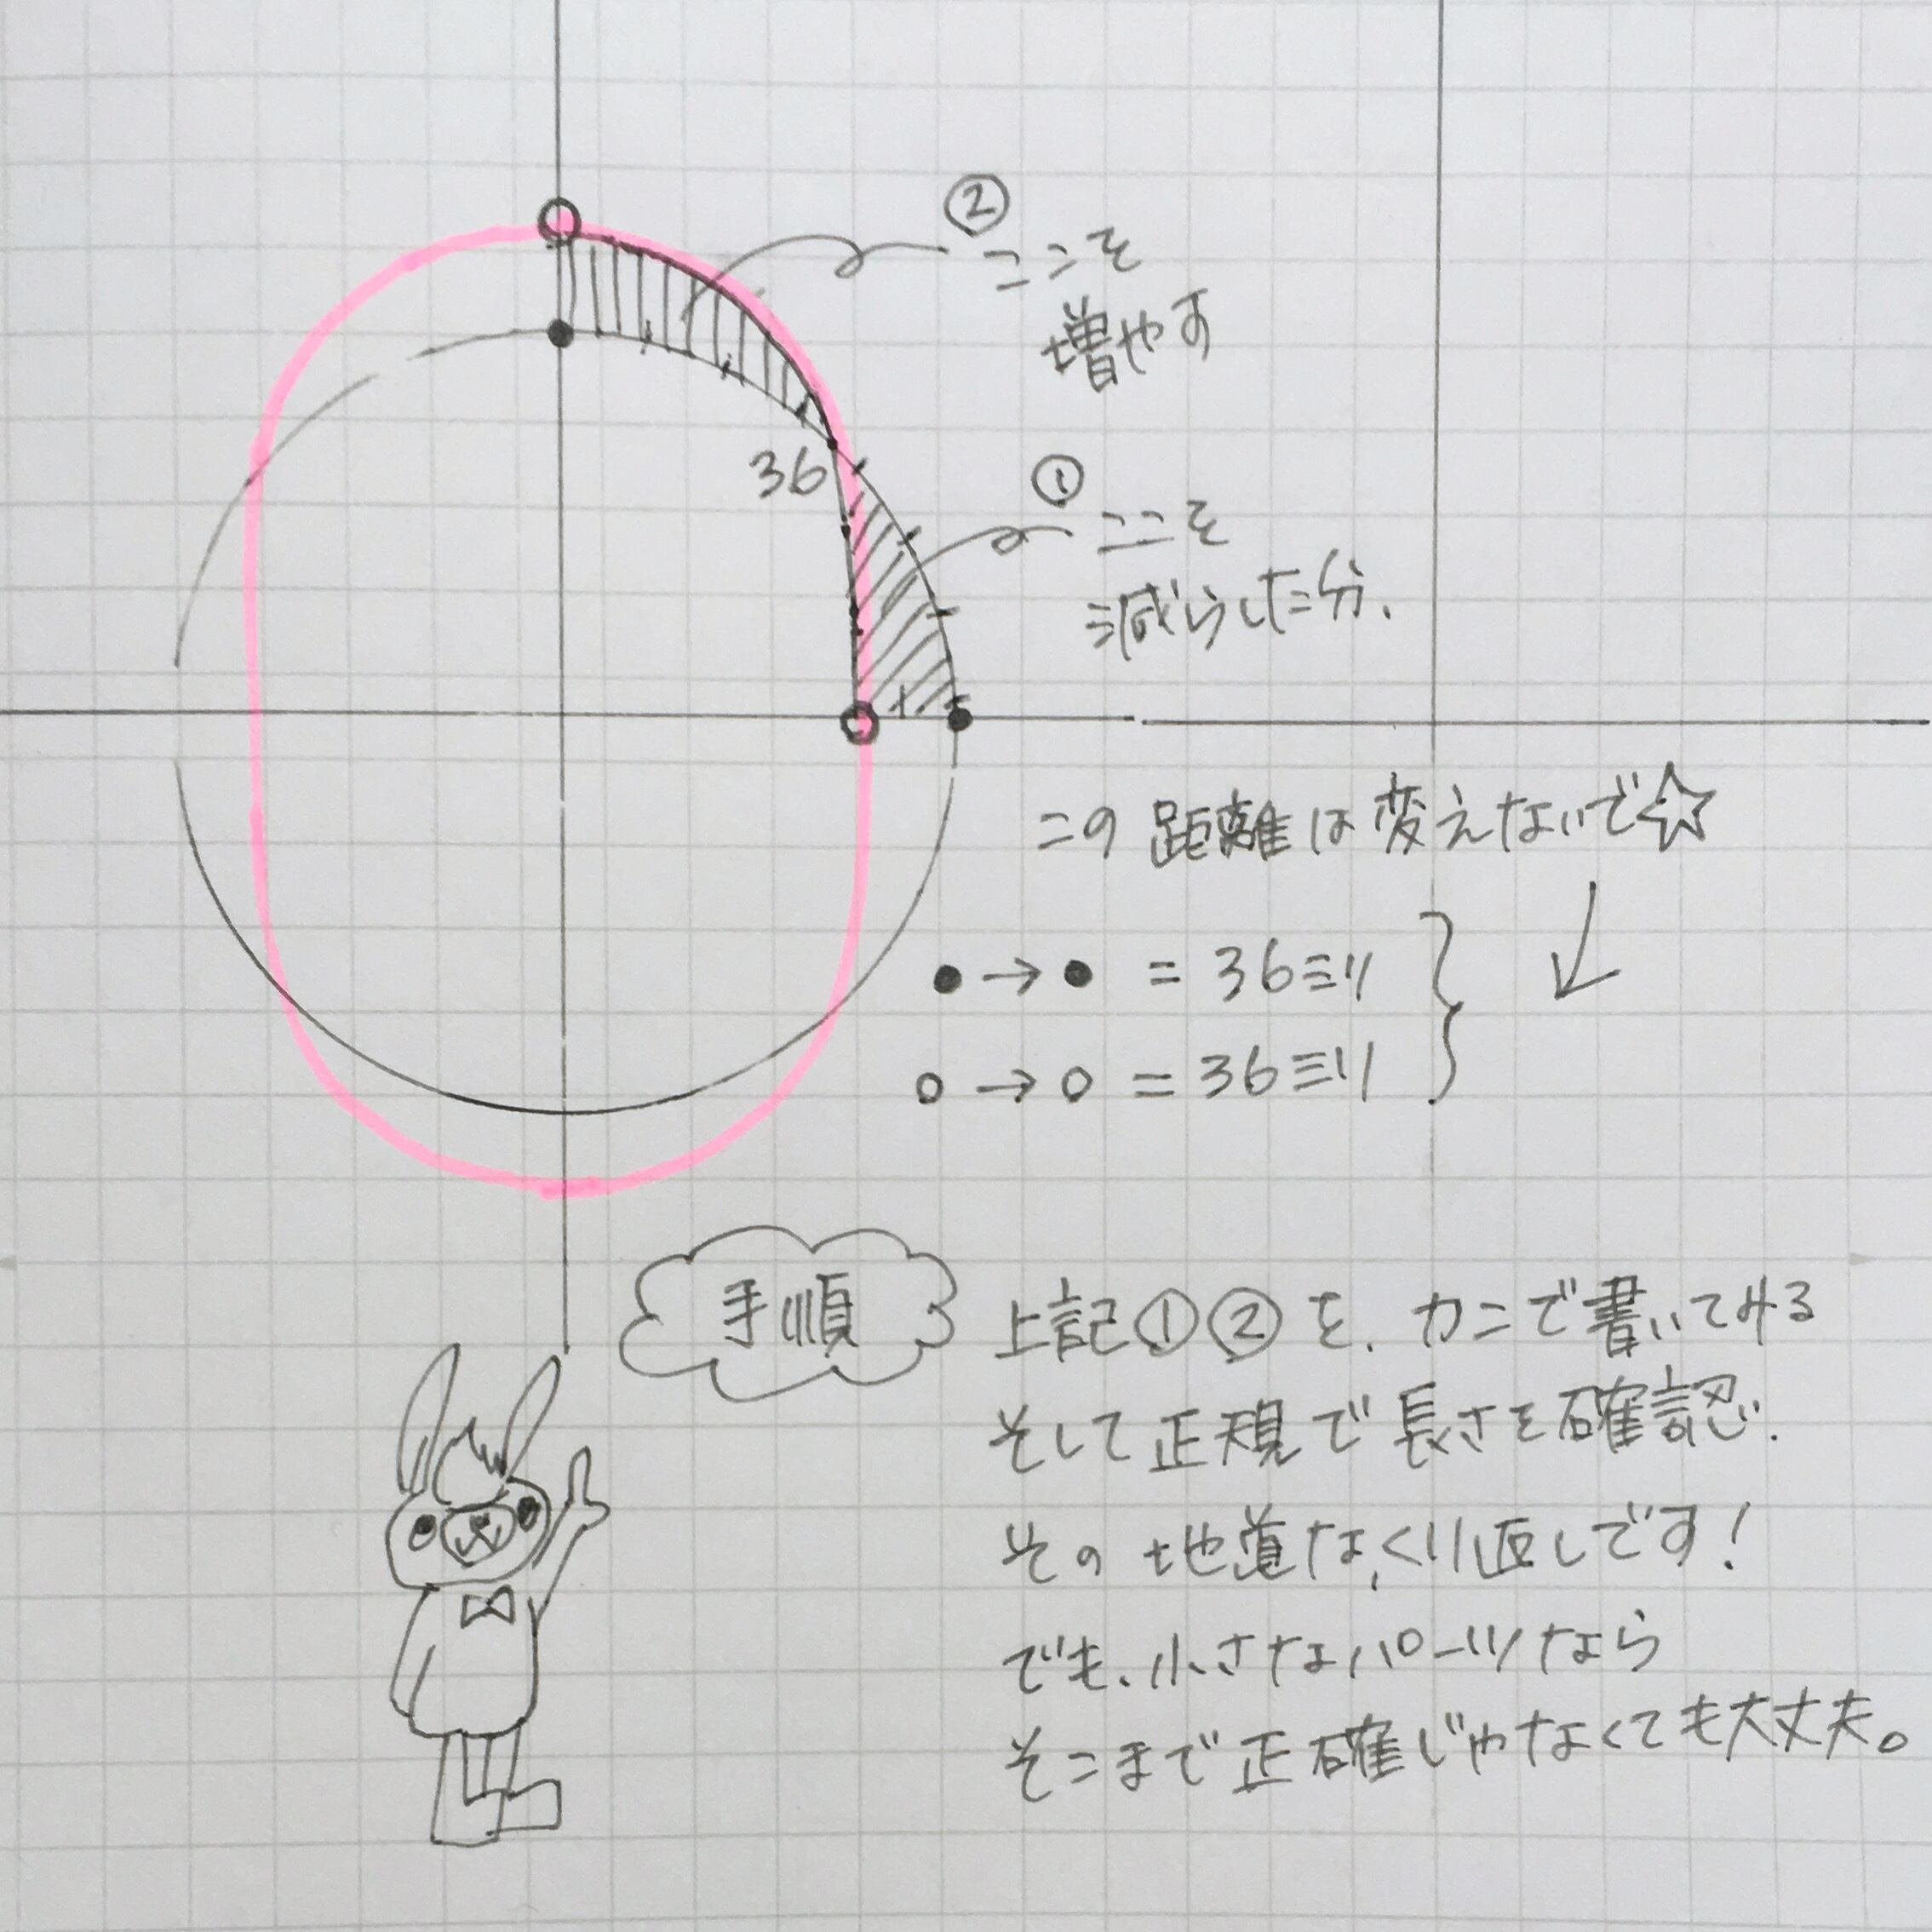 ②
ここを
増やす
36
①
ここを
減らした分、
この距離は変えないで☆
●→● = 36ミリ
○→○ = 36ミリ
手順
上記①②を、カンで書いてみる
そして正規で長さを確認.
その地道な、くり返しです!
でも、小さなパーツなら
そこまで正確じゃなくても大丈夫。